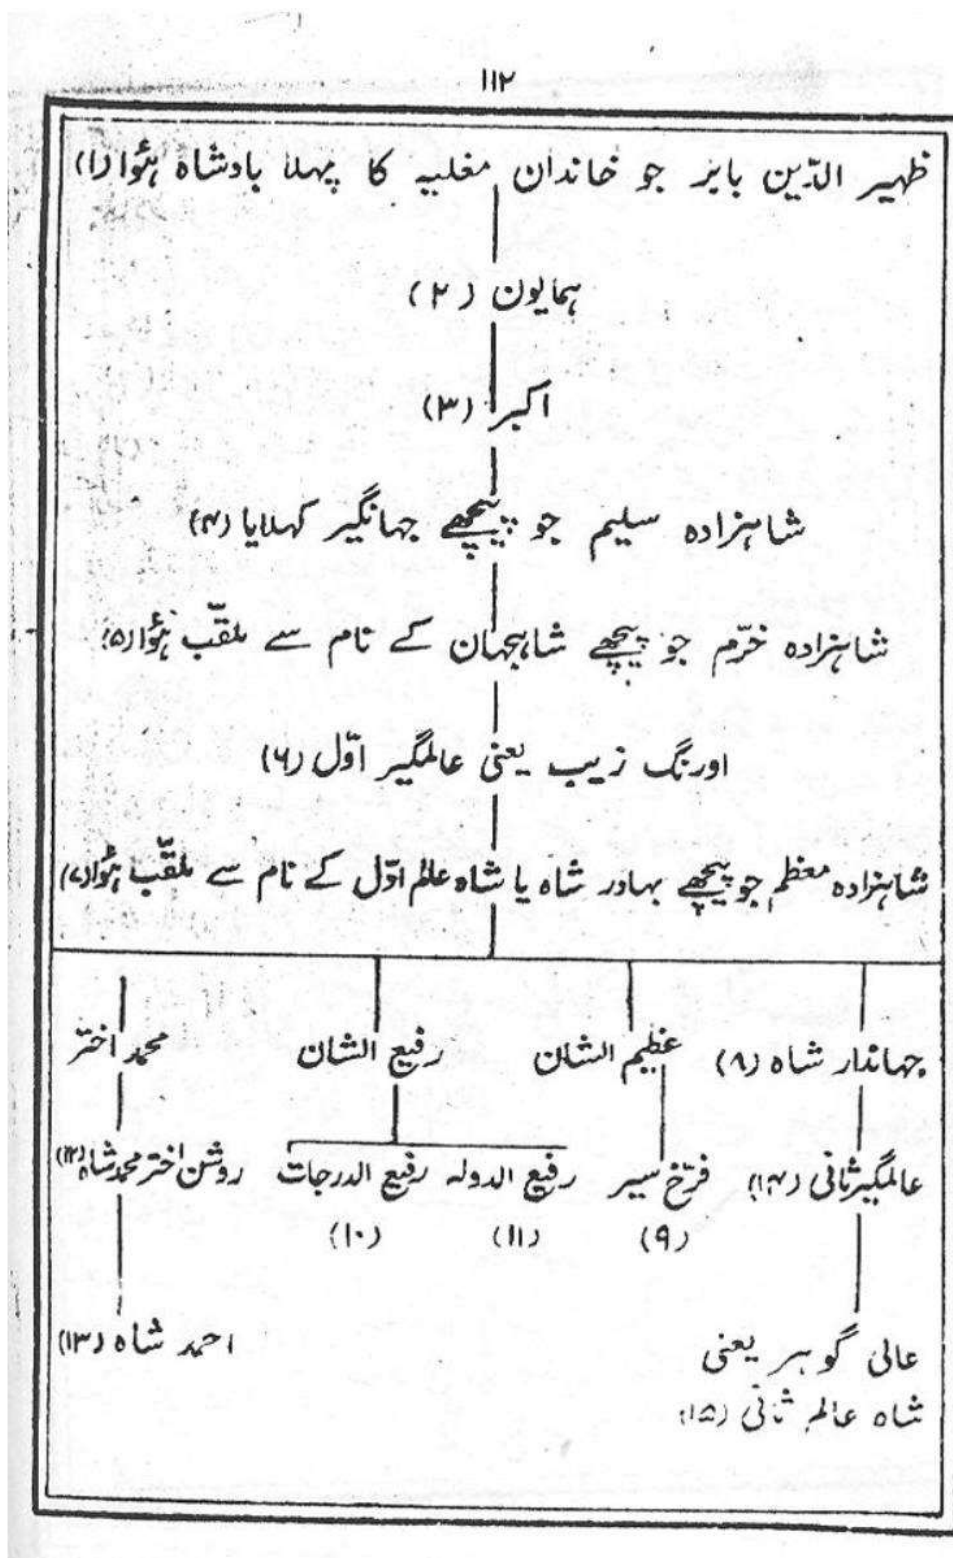 ۱۱۲
ظہیر الدّین بابر جو خاندان مغلیہ کا پہلا بادشاہ ہُوا (۱)
ہمایون (۲)
اکبر (۳)
شاہزادہ سلیم جو پیچھے جہانگیر کہلایا (۴)
شاہزادہ خرّم جو پیچھے شاہجہان کے نام سے ملقّب ہُوا (۵)
اورنگ زیب یعنی عالمگیر اوّل (۶)
شاہزادہ معظم جو پیچھے بہادر شاہ یا شاہ عالم اوّل کے نام سے ملقّب ہُوا (۷)
جہاندار شاہ (۸) عظیم الشان رفیع الشان محمد اختر
عالمگیر ثانی (۱۴) فرّخ سیر رفیع الدولہ رفیع الدرجات روشن اختر محمد شاہ (۱۲)
(۹) (۱۱) (۱۰)
عالی گوہر یعنی احمد شاہ (۱۳)
شاہ عالم ثانی (۱۵)